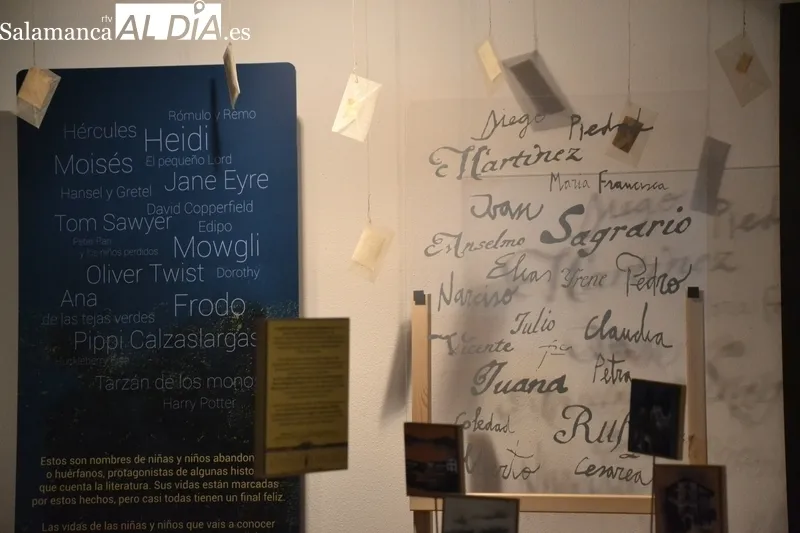 rtv
Salamanca AL DÍA.es
Rómulo y Remo
Hércules
Heidi
Moisés
El pequeño Lord
Hansel y Gretel
Jane Eyre
David Copperfield
Tom Sawyer
Edipo
Peter Pan
y los niños perdidos
Mowgli
Oliver Twist
Dorothy
Ana
de las tejas verdes
Frodo
Pippi Calzaslargas
Huckleberry Finn
Tarzán de los monos
Harry Potter
Estos son nombres de niñas y niños abandon
o huérfanos, protagonistas de algunas histo
que cuenta la literatura. Sus vidas están marcadas
por estos hechos, pero casi todas tienen un final feliz.
Las vidas de las niñas y niños que vais a conocer
Diego
Piedra
Martinez
Maria Francisca
Juan
Sagrario
Anselmo
Elias
Yrene
Pedro
Narciso
Julio
Claudia
Vicente
Juana
Petra
Soledad
Ruf
Cesarea